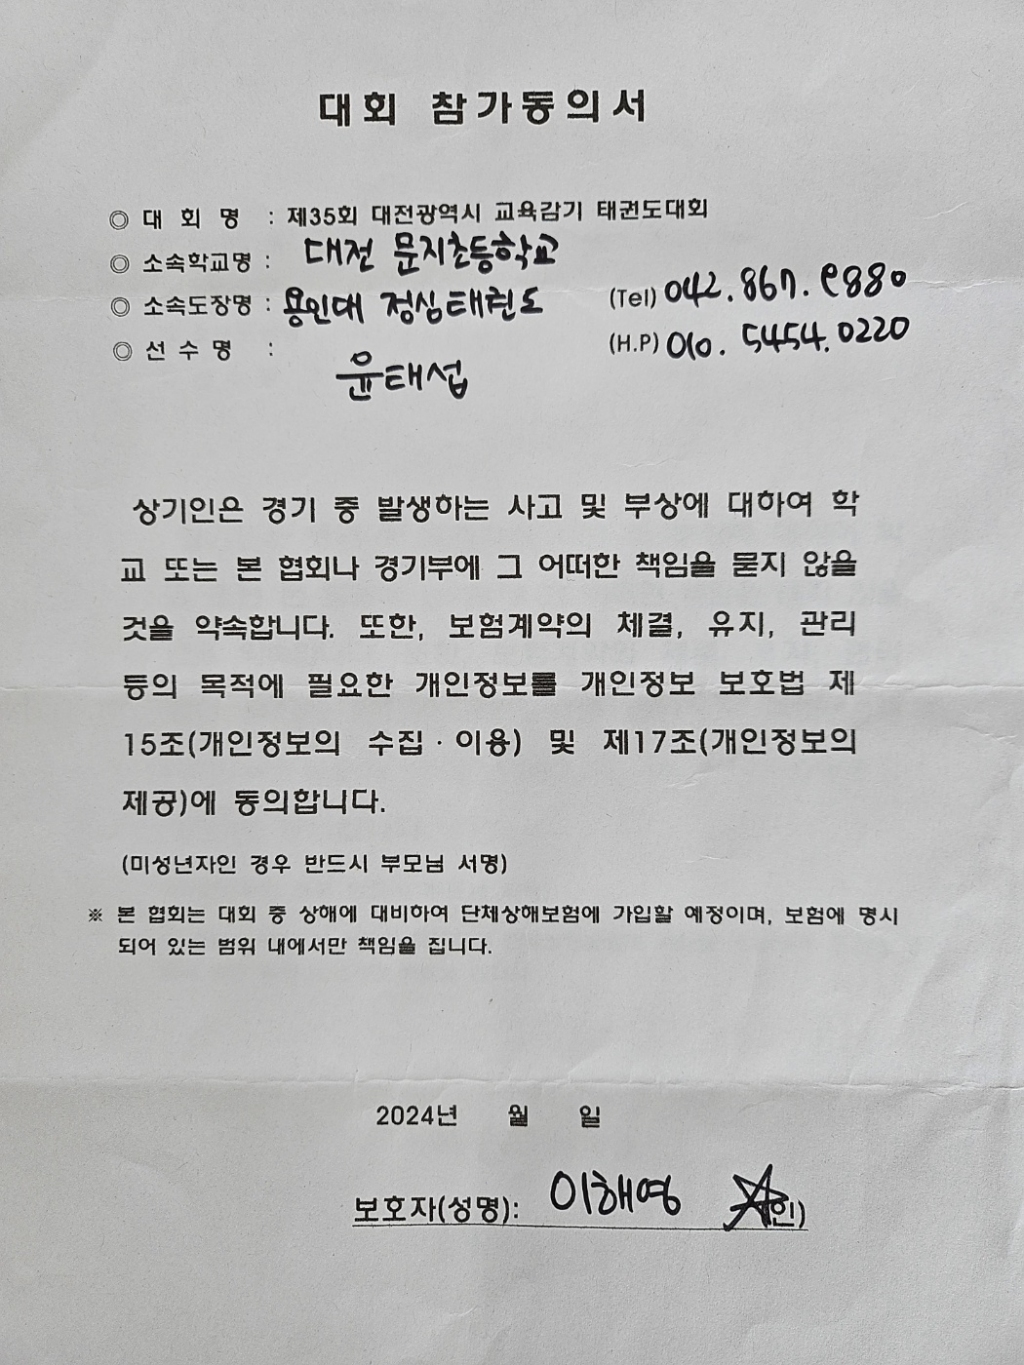 대회 참가동의서
◎ 대 회 명 : 제35회 대전광역시 교육감기 태권도대회
◎ 소속학교명 : 대전 문지초등학교
◎ 소속도장명 : 용인대 정심태권도 (Tel) 042.867.9880
◎ 선 수 명 : 윤태섭 (H.P) 010.5454.0220
상기인은 경기 중 발생하는 사고 및 부상에 대하여 학
교 또는 본 협회나 경기부에 그 어떠한 책임을 묻지 않을
것을 약속합니다. 또한, 보험계약의 체결, 유지, 관리
등의 목적에 필요한 개인정보를 개인정보 보호법 제
15조(개인정보의 수집·이용) 및 제17조(개인정보의
제공)에 동의합니다.
(미성년자인 경우 반드시 부모님 서명)
※ 본 협회는 대회 중 상해에 대비하여 단체상해보험에 가입할 예정이며, 보험에 명시
되어 있는 범위 내에서만 책임을 집니다.
2024년 월 일
보호자(성명): 이해영 인)